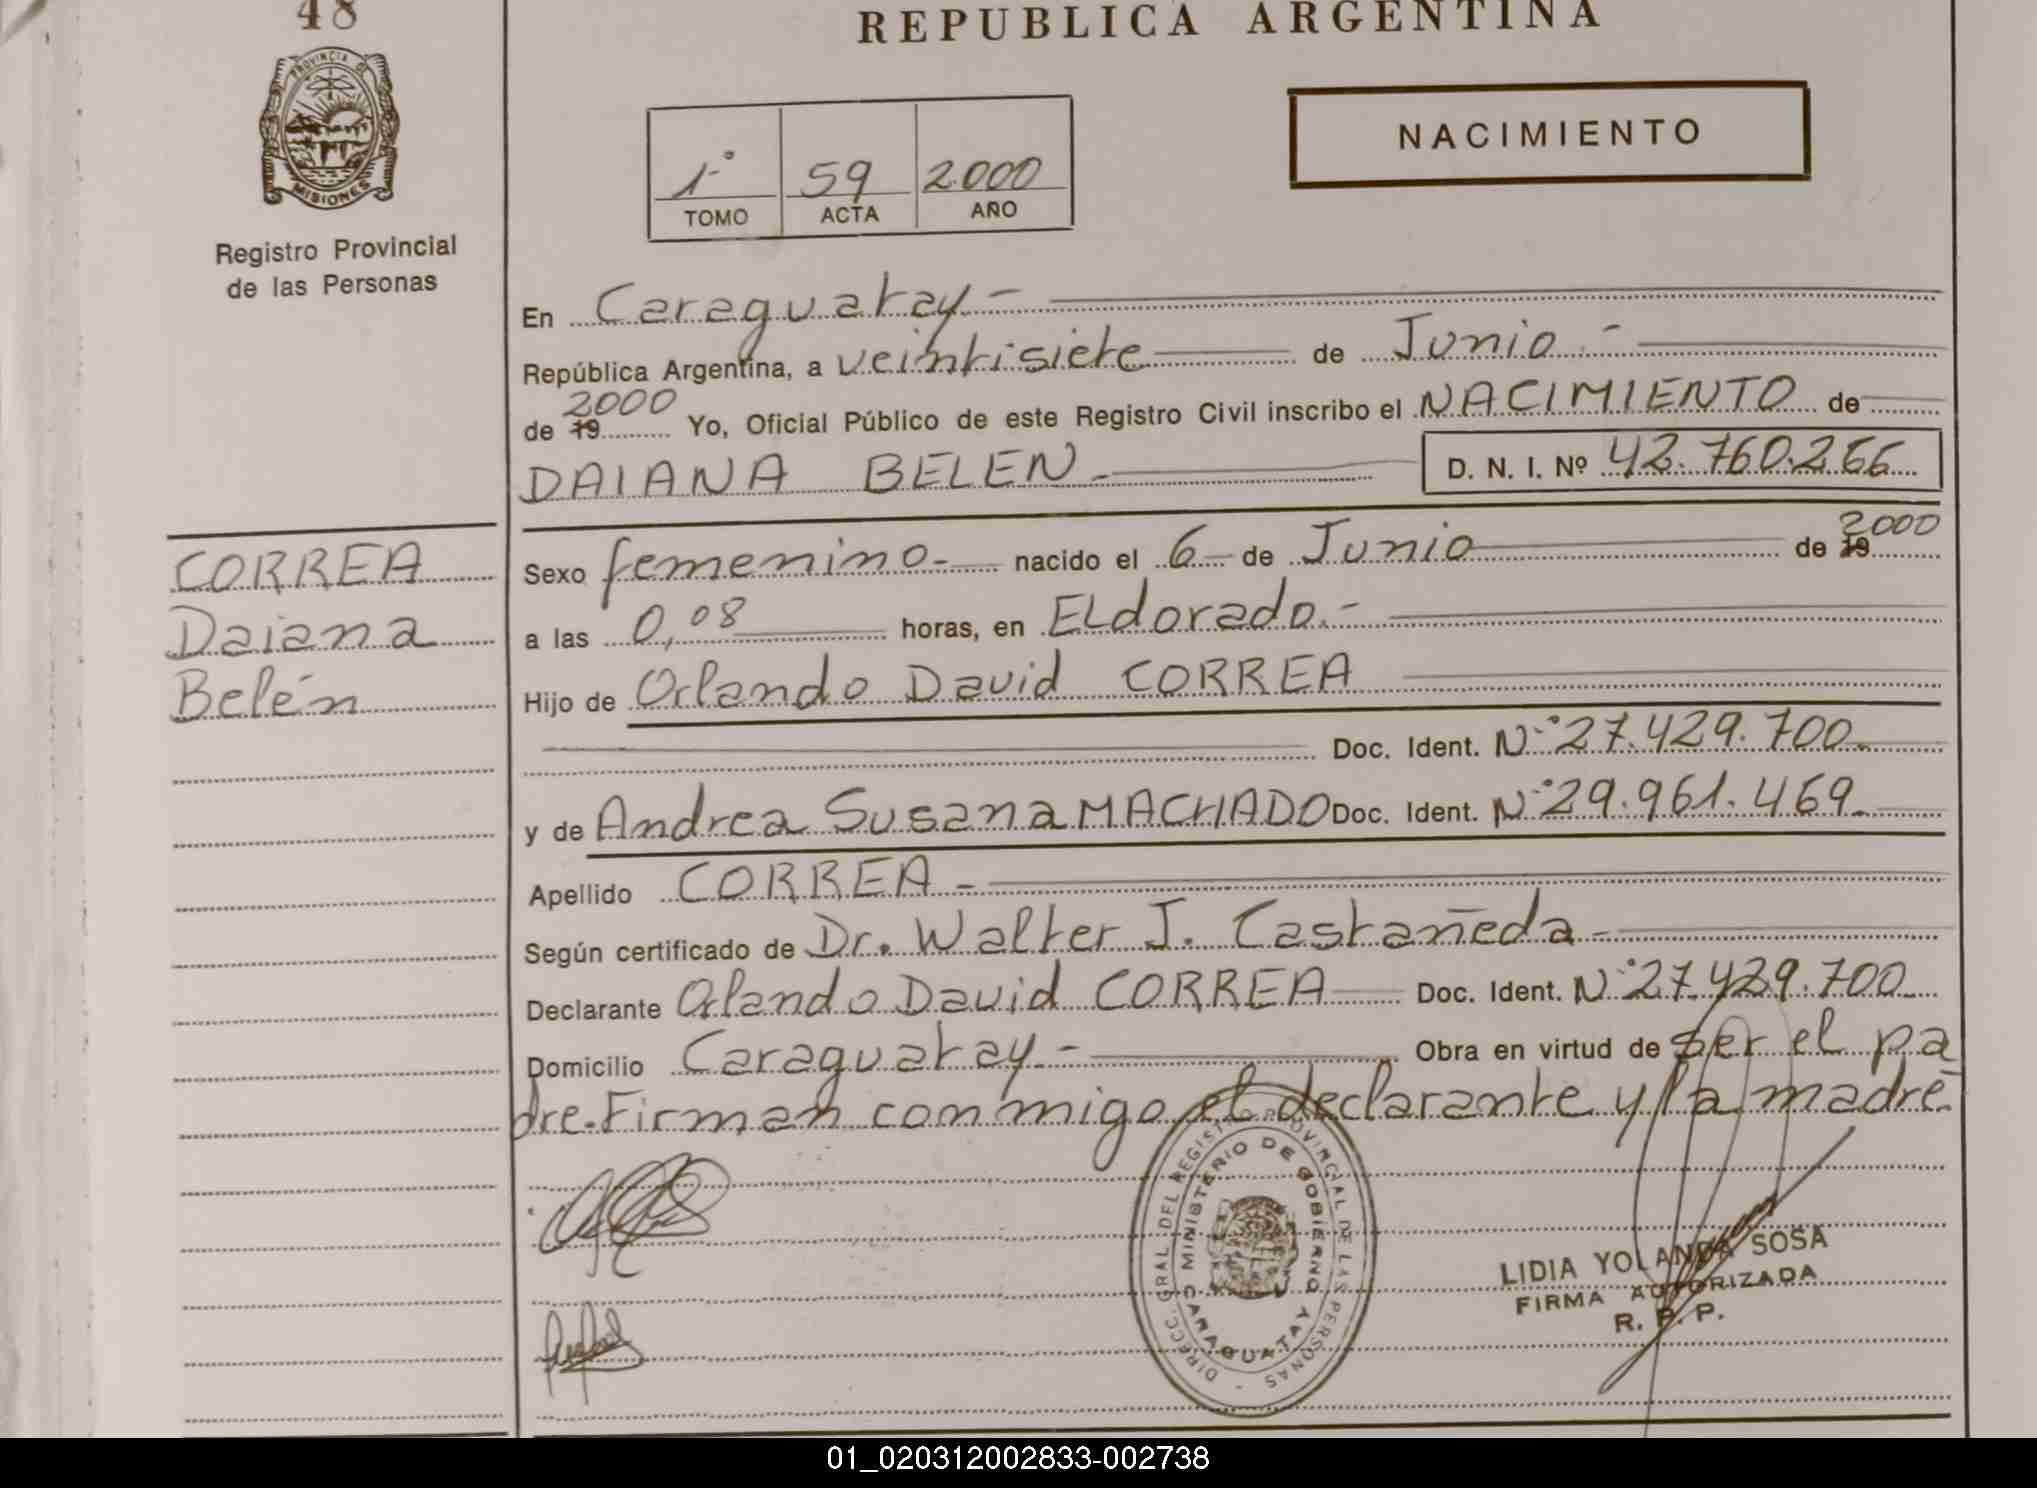 48
REPUBLICA ARGENTINA
PROVINCIA DE
MISIONES
Registro Provincial
de las Personas
NACIMIENTO
1º 59 2.000
TOMO ACTA AÑO
En Caraguatay.-
República Argentina, a veintisiete de Junio.-
de 19 2000 Yo, Oficial Público de este Registro Civil inscribo el NACIMIENTO de
DAIANA BELEN.- D. N. I. Nº 42.760.266
CORREA
Daiana
Belén
Sexo femenino.- nacido el 6 de Junio de 19 2000
a las 0,08 horas, en ELdorado.-
Hijo de Orlando David CORREA
Doc. Ident. Nº 27.429.700.
y de Andrea Susana MACHADO Doc. Ident. Nº 29.961.469.
Apellido CORREA.-
Según certificado de Dr. Walter J. Castañeda.-
Declarante Orlando David CORREA Doc. Ident. Nº 27.429.700
Domicilio Caraguatay.- Obra en virtud de ser el pa
dre.Firman conmigo el declarante y la madre.
DIRECC. GRAL DEL REGISTRO PROVINCIAL DE LAS PERSONAS -
MINISTERIO DE GOBIERNO
CARAGUATAY
LIDIA YOLANDA SOSA
FIRMA AUTORIZADA
R. P. P.
01_020312002833-002738